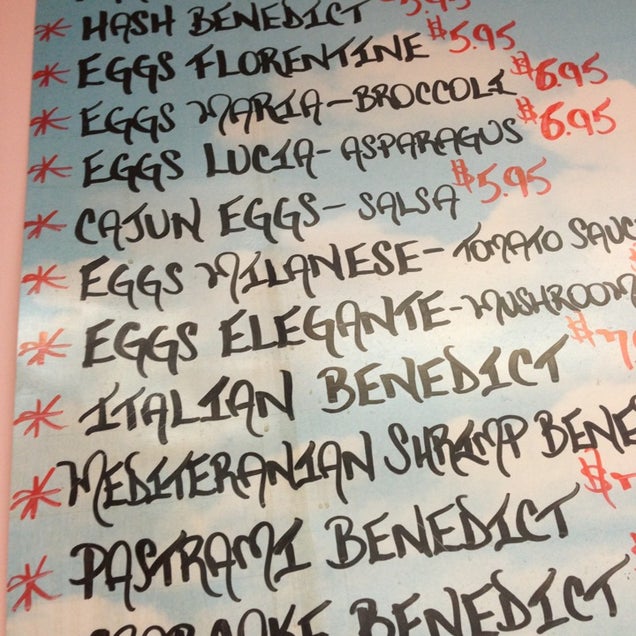 * HASH BENEDICT 5.95
* EGGS FLORENTINE $5.95
* EGGS MARIA-BROCCOLI $6.95
* EGGS LUCIA-ASPARAGUS $6.95
* CAJUN EGGS-SALSA $5.95
* EGGS MILANESE-TOMATO SAUC
* EGGS ELEGANTE-MUSHROOM
* ITALIAN BENEDICT $
* MEDITERANIAN SHRIMP BENE
* PASTRAMI BENEDICT $
BENEDICT